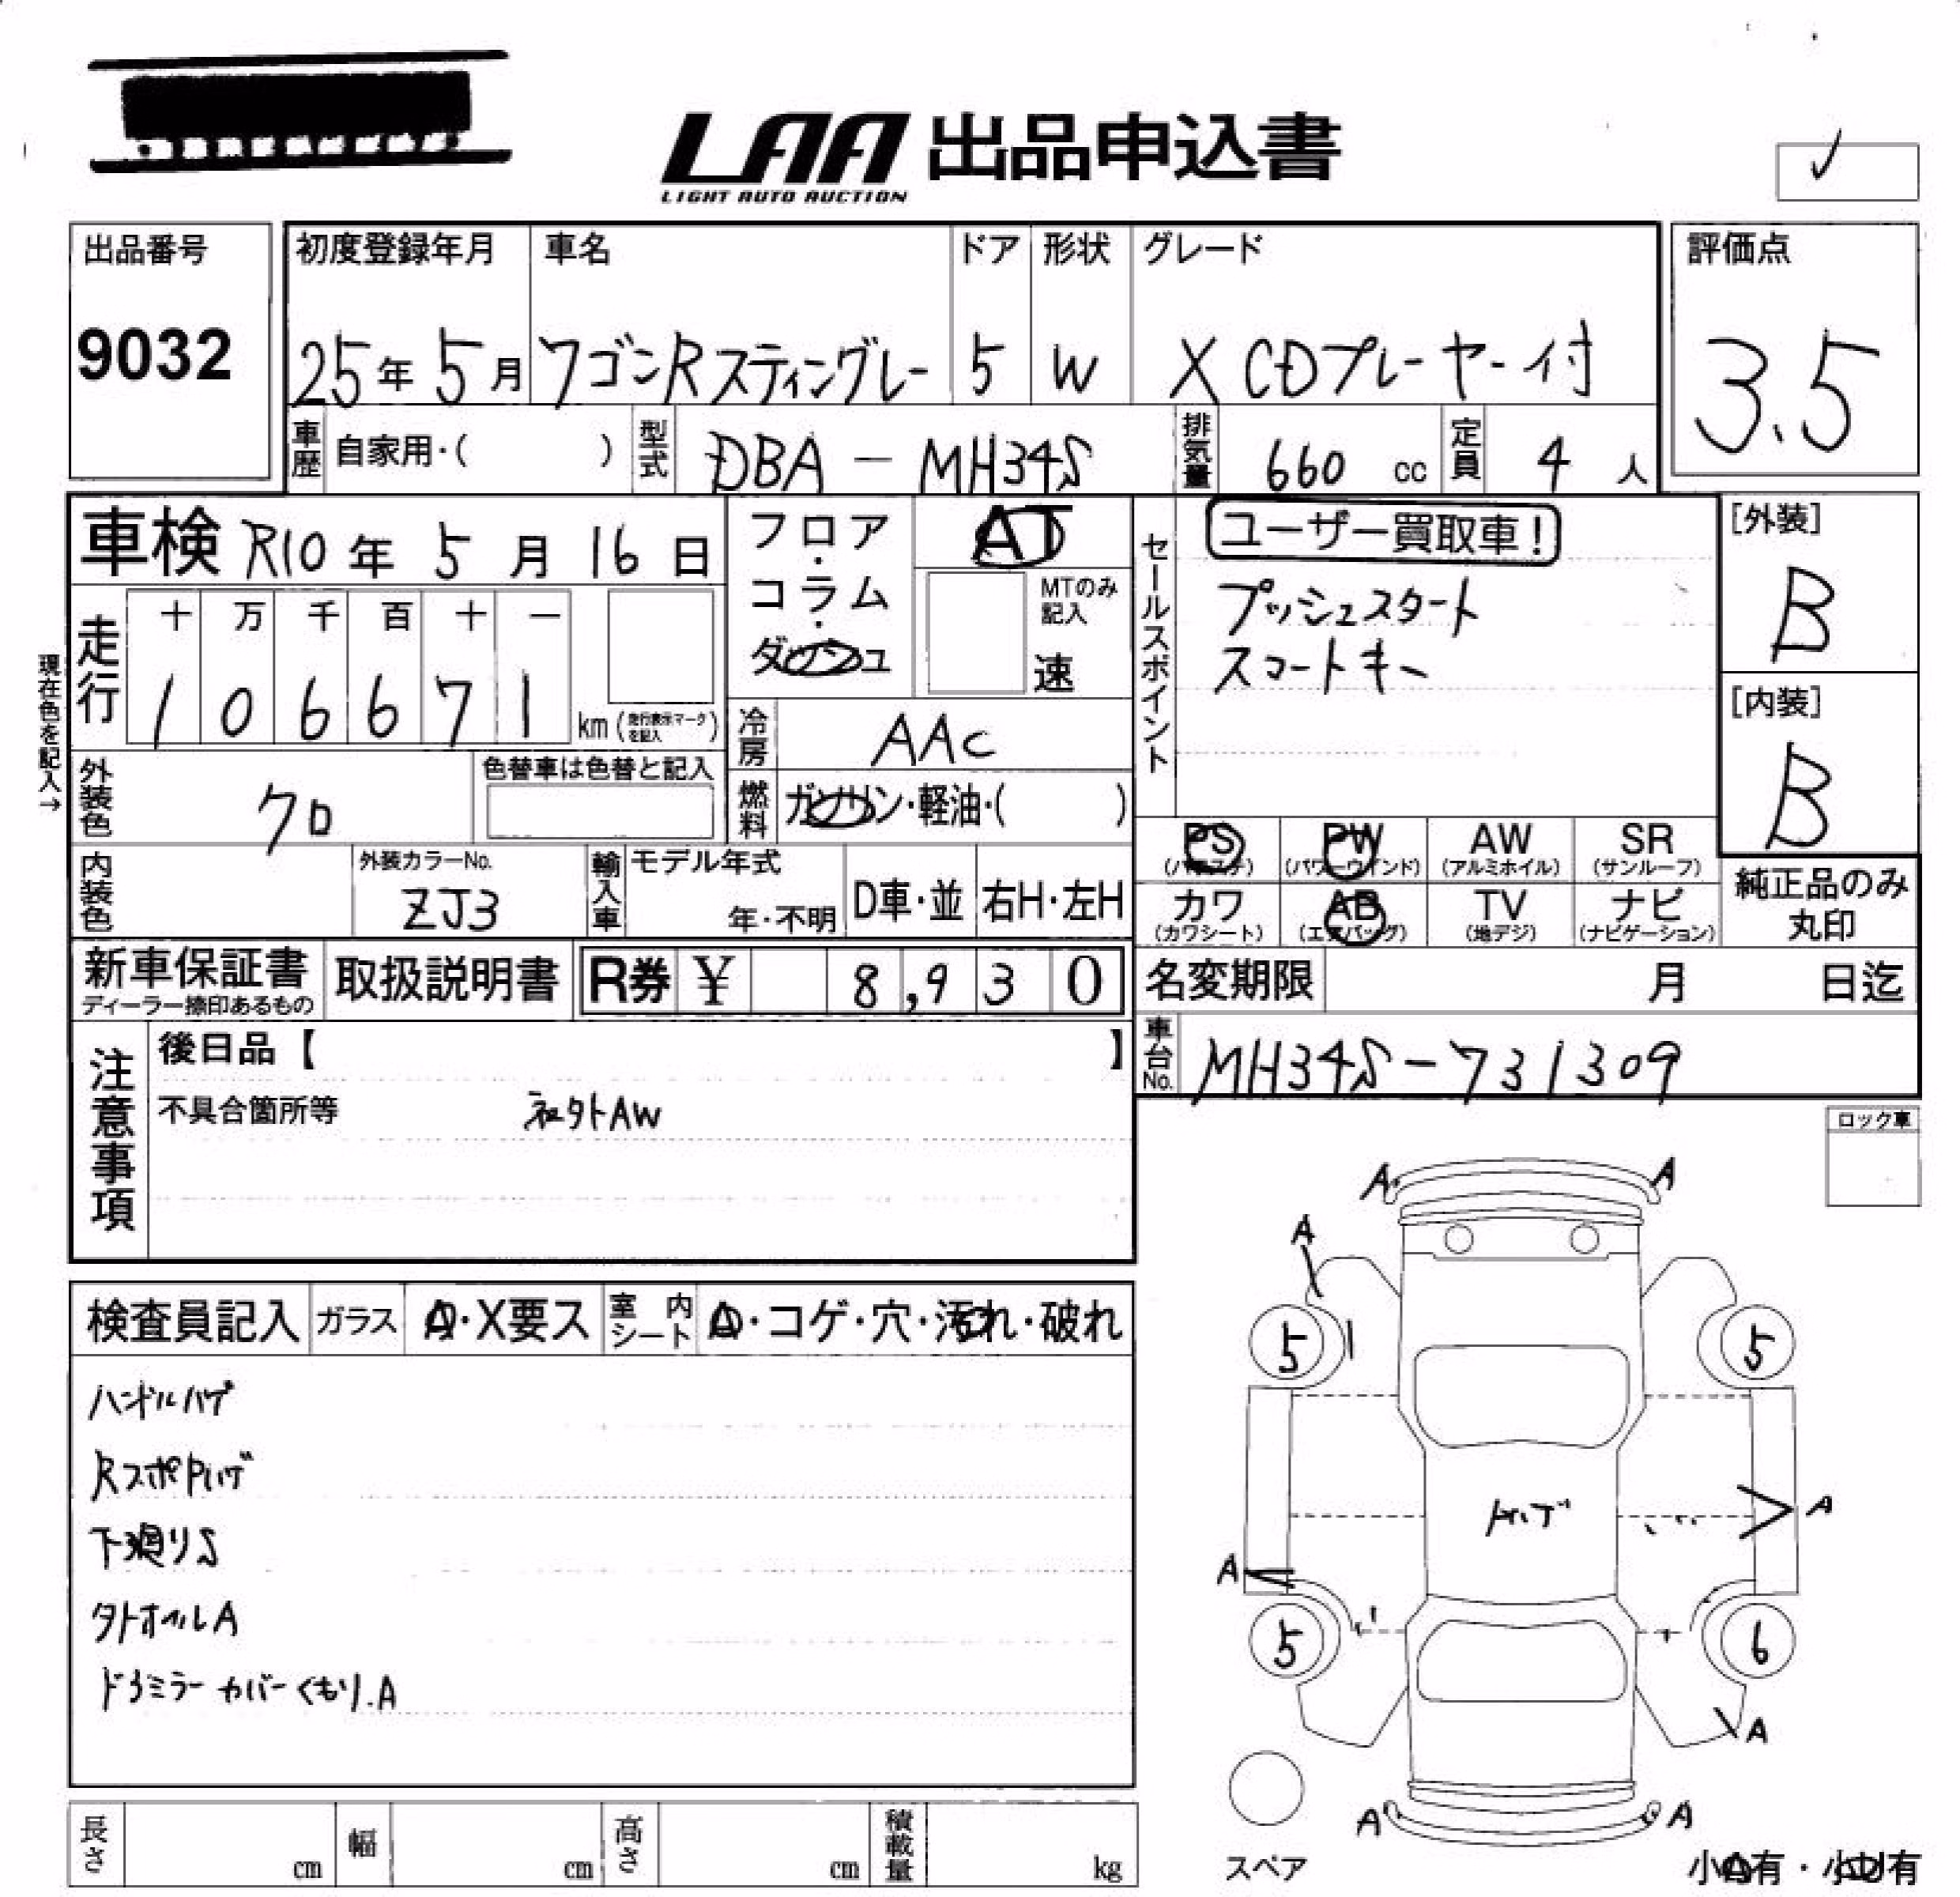 LAA 出品申込書
LIGHT AUTO AUCTION
出品番号
9032
初度登録年月
25年 5月
車名
ワゴンRスティングレー
ドア
5
形状
W
グレード
X CDプレーヤー付
評価点
3.5
車歴 自家用・( )
型式 DBA - MH34S
排気量 660 cc
定員 4 人
車検 R10年 5月 16日
走行
十 万 千 百 十 一
1 0 6 6 7 1 km (走行表示マークを記入)
現在色を記入→
外装色 クロ
色替車は色替と記入
内装色
外装カラーNo.
ZJ3
フロア・コラム・ダッシュ
AT
MTのみ記入
速
冷房 AAC
燃料 ガソリン・軽油・( )
輸入車 モデル年式
年・不明
D車・並
右H・左H
セールスポイント
ユーザー買取車!
プッシュスタート
スマートキー
[外装]
B
[内装]
B
PS (パワステ)
PW (パワーウインド)
AW (アルミホイル)
SR (サンルーフ)
カワ (カワシート)
AB (エアバッグ)
TV (地デジ)
ナビ (ナビゲーション)
純正品のみ丸印
新車保証書
ディーラー捺印あるもの
取扱説明書
R券 ¥ 8,930
名変期限 月 日迄
車台No. MH34S-731309
注意事項
後日品【 】
不具合箇所等 社外AW
ロック車
検査員記入
ガラス A・X要ス
室内シート A・コゲ・穴・汚れ・破れ
ハンドルハゲ
Rスポ内ハゲ
下廻りS
外ホイルA
ドアミラーカバーくもり.A
A A
A
5 5
A
A
5 6
A
A A
スペア
小A有・小U有
長さ cm
幅 cm
高さ cm
積載量 kg